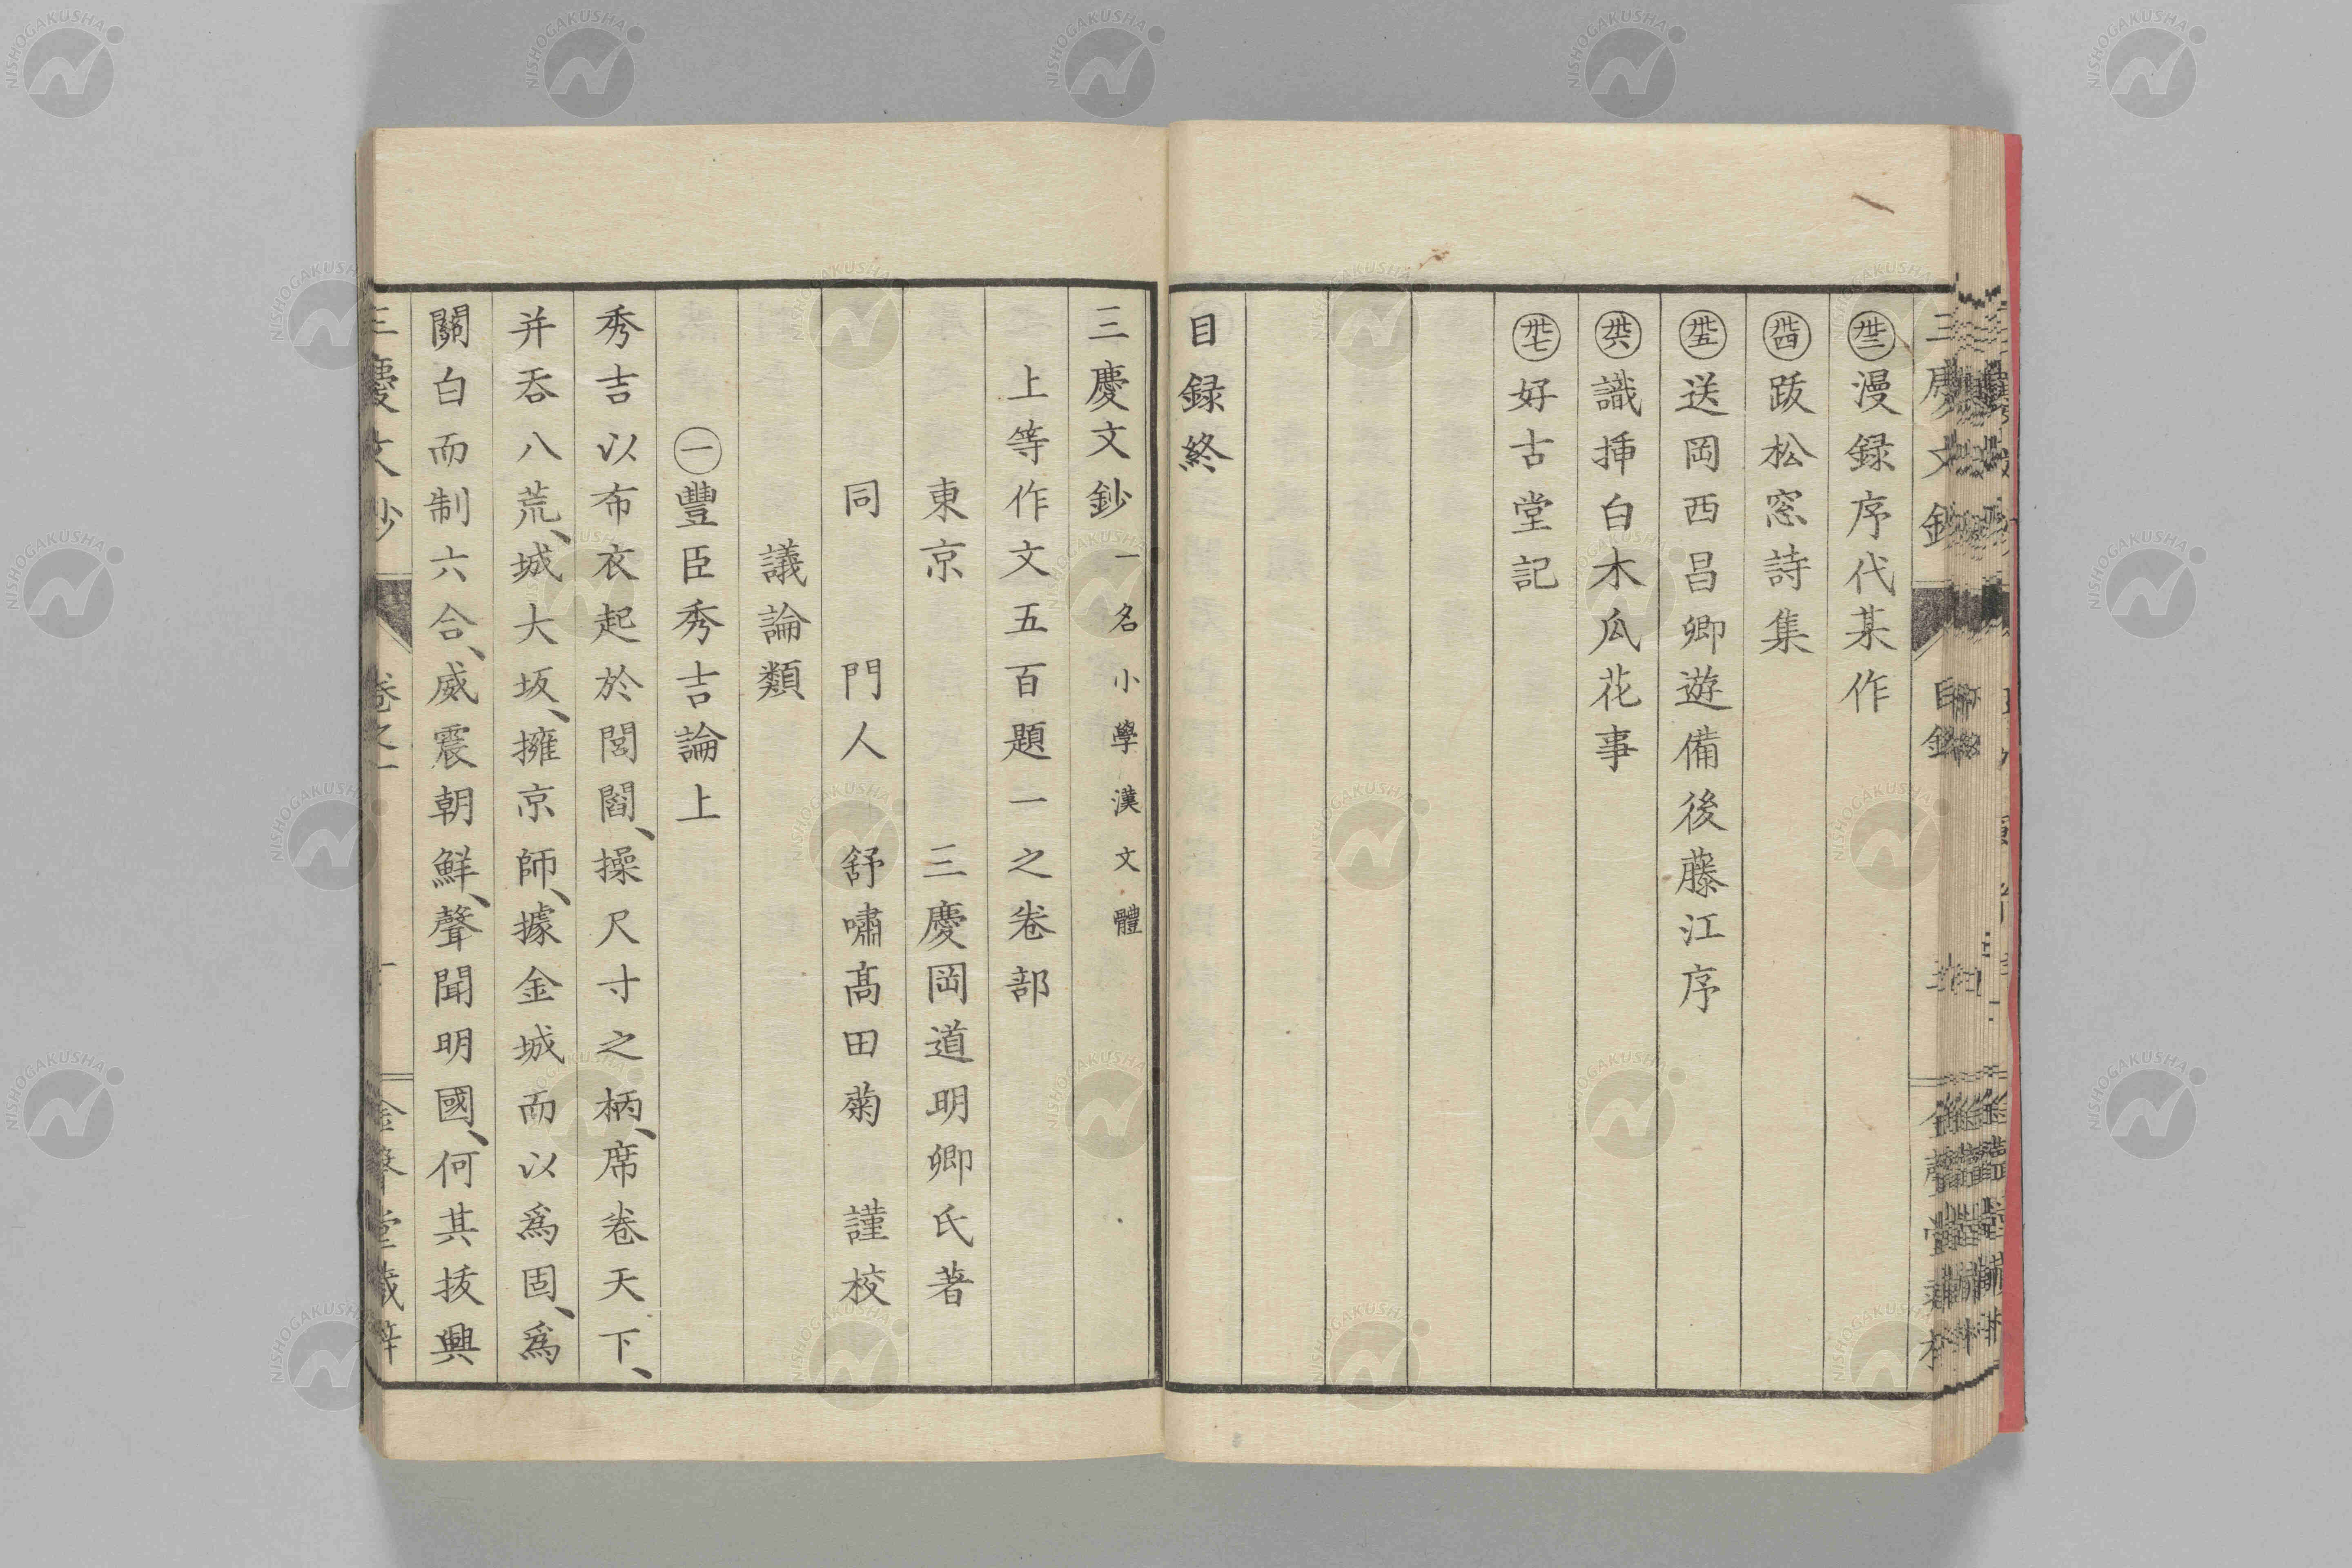 丗三漫録序代某作
丗四跋松窓詩集
丗五送岡西昌卿遊備後藤江序
丗六識挿白木瓜花事
丗七好古堂記
目録終
三慶文鈔 一名小學漢文體
上等作文五百題一之卷部
東京 三慶岡道明卿氏著
同 門人 舒嘯髙田菊 謹校
議論類
㊀豐臣秀吉論上
秀吉以布衣起於閭閻、操尺寸之柄、席卷天下、
并吞八荒、城大坂、擁京師、據金城而以爲固、爲
關白而制六合、威震朝鮮、聲聞明國、何其拔興
三慶文鈔 卷之一 一 金聲堂藏梓